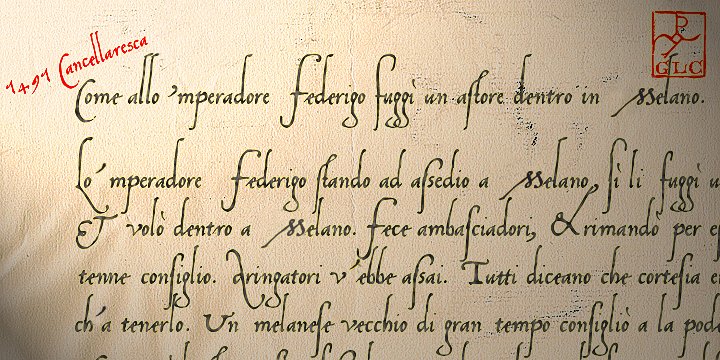 1491 Cancellaresca
GLC
Come allo 'mperadore Federigo fuggì un aſtore dentro in Melano.
Lo 'mperadore Federigo ſtando ad aſſedio a Melano, ſì li fuggì u
Et volò dentro a Melano. Fece ambaſciadori, & rimandò per eſ
tenne conſiglio. Aringatori v'ebbe aſſai. Tutti diceano che corteſia e
ch'a tenerlo. Un melaneſe vecchio di gran tempo conſigliò a la pode